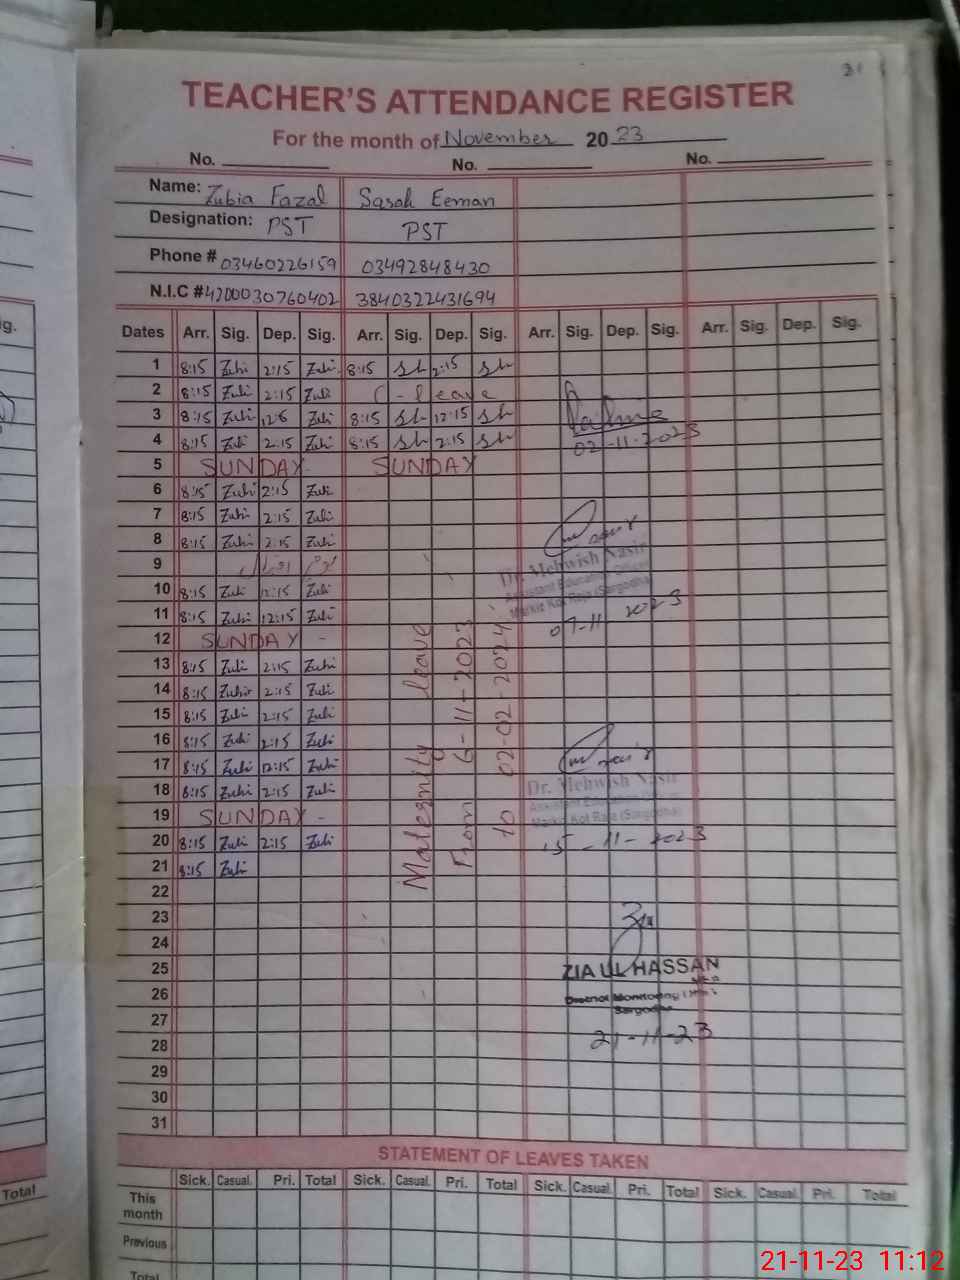 31
TEACHER'S ATTENDANCE REGISTER
For the month of November 2023
No. No. No.
Name: Zubia Fazal Sasah Eeman
Designation: PST PST
Phone # 03460226159 03492848430
N.I.C # 4200030760402 3840322431694
Dates Arr. Sig. Dep. Sig. Arr. Sig. Dep. Sig. Arr. Sig. Dep. Sig. Arr. Sig. Dep. Sig.
1 8:15 Zubi 2:15 Zubi 8:15 2:15
2 8:15 Zubi 2:15 Zubi C-leave
3 8:15 Zubi Zubi 8:15 12:15
4 8:15 Zubi 2:15 Zubi 8:15 2:15
02-11-2023
5 SUNDAY SUNDAY
6 8:15 Zubi 2:15 Zubi
7 8:15 Zubi 2:15 Zubi
8 8:15 Zubi 2:15 Zubi
9 یوم اقبال
Dr. Mehwish Nasir
Assistant Education Officer
Markiz Kot Raja (Sargodha)
10 8:15 Zubi 12:15 Zubi
11 8:15 Zubi 12:15 Zubi
07-11-2023
12 SUNDAY -
13 8:15 Zubi 2:15 Zubi
14 8:15 Zubi 2:15 Zubi
15 8:15 Zubi 2:15 Zubi
16 8:15 Zubi 2:15 Zubi
17 8:15 Zubi 12:15 Zubi
18 8:15 Zubi 2:15 Zubi
Dr. Mehwish Nasir
Assistant Education Officer
Markiz Kot Raja (Sargodha)
19 SUNDAY -
20 8:15 Zubi 2:15 Zubi
15-11-2023
21 8:15 Zubi
Maternity leave
From 6-11-2023
to 02-02-2024
22
23
24
25
ZIA UL HASSAN
26
District Monitoring
Sargodha
27
21-11-23
28
29
30
31
STATEMENT OF LEAVES TAKEN
Sick. Casual. Pri. Total Sick. Casual. Pri. Total Sick. Casual. Pri. Total Sick. Casual. Pri. Total
This month
Previous
Total
ig.
Total
21-11-23 11:12